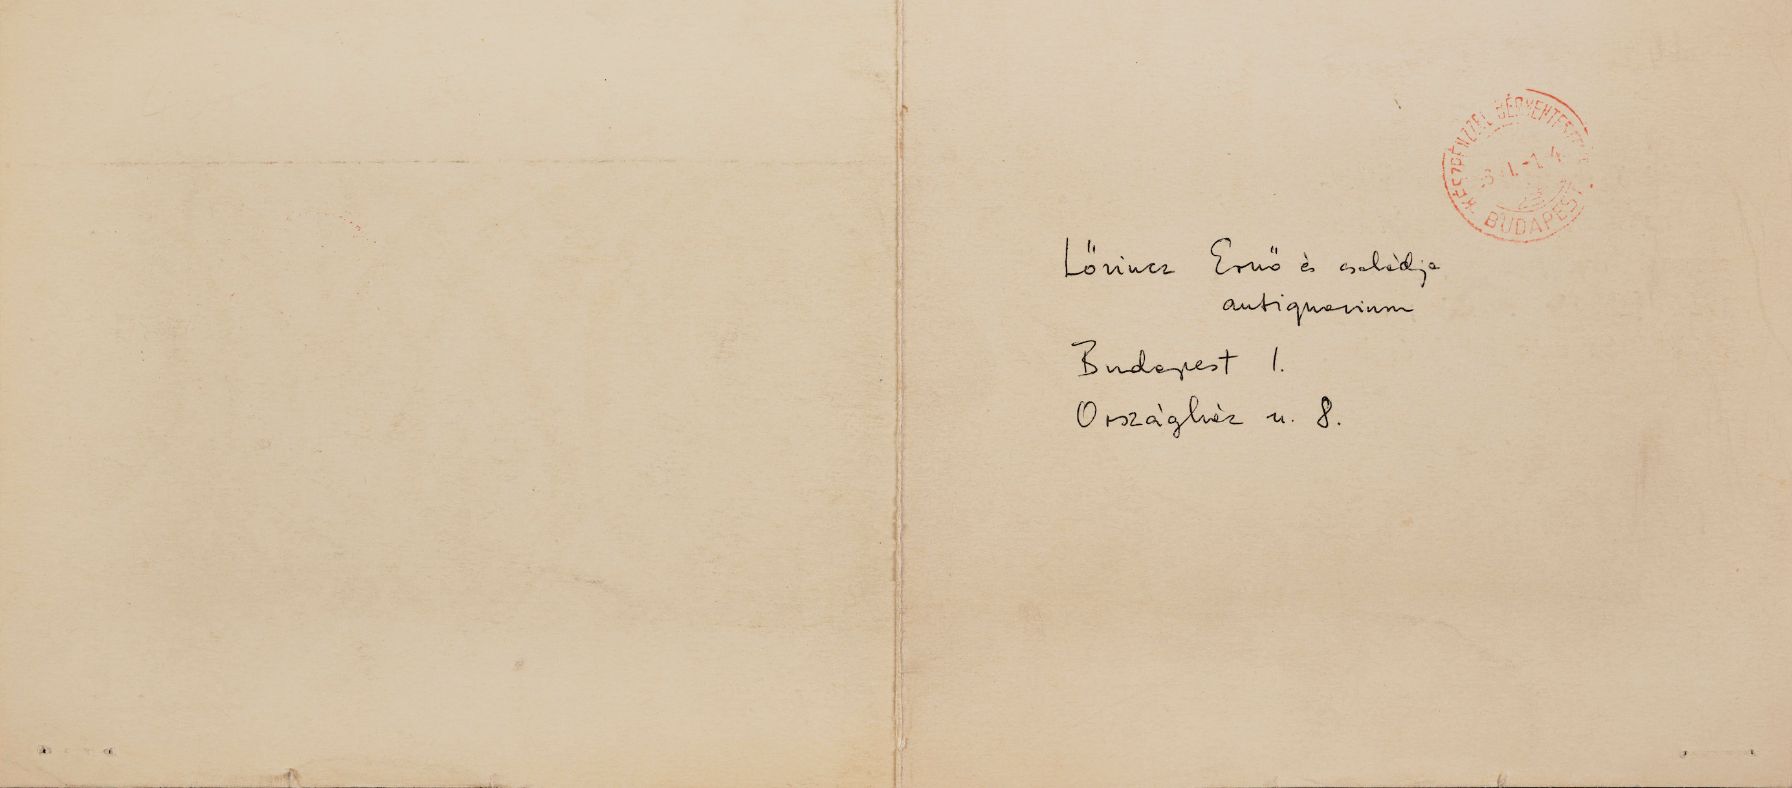 KÉSZPÉNZZEL BÉRMENTESÍTVE
BUDAPEST
Lőrincz Ernő és családja
antiquarium
Budapest 1.
Országház u. 8.